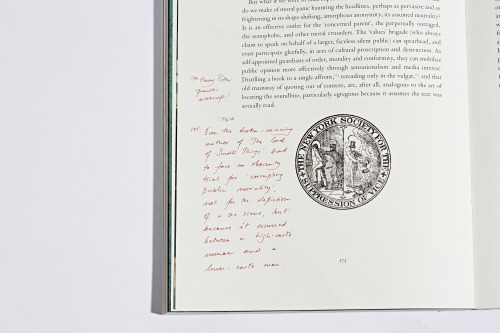 do we make of moral panic haunting the headlines, perhaps as pervasive and as
frightening in its shape-shifting, amorphous anonymity, its assumed neutrality?
It is an effective outlet for the 'concerned parent', the perpetually outraged,
the xenophobe, and other moral crusaders. The 'values' brigade (who always
claim to speak on behalf of a larger, faceless silent public) can spearhead, and
even participate gleefully, in acts of cultural proscription and destruction. As
self appointed guardians of order, morality and conformity, they can mobilize
public opinion more effectively through sensationalism and media interest.
Distilling a book to a single affront, rereading only in the vulgar, and that
old mainstay of quoting out of context, are, after all, analogous to the art of
locating the soundbite, particularly egregious because it assumes the text was
actually read.
Harry Potter
Fig. 66
Even the Booker-winning
author of 'The God
of Small Things' had
to face an obscenity
trial for 'corrupting
public morality',
not for the depiction
of a sex scene, but
because it occurred
between a high-caste
woman and a
lower-caste man.
THE NEW YORK SOCIETY FOR THE
SUPPRESSION OF VICE
175